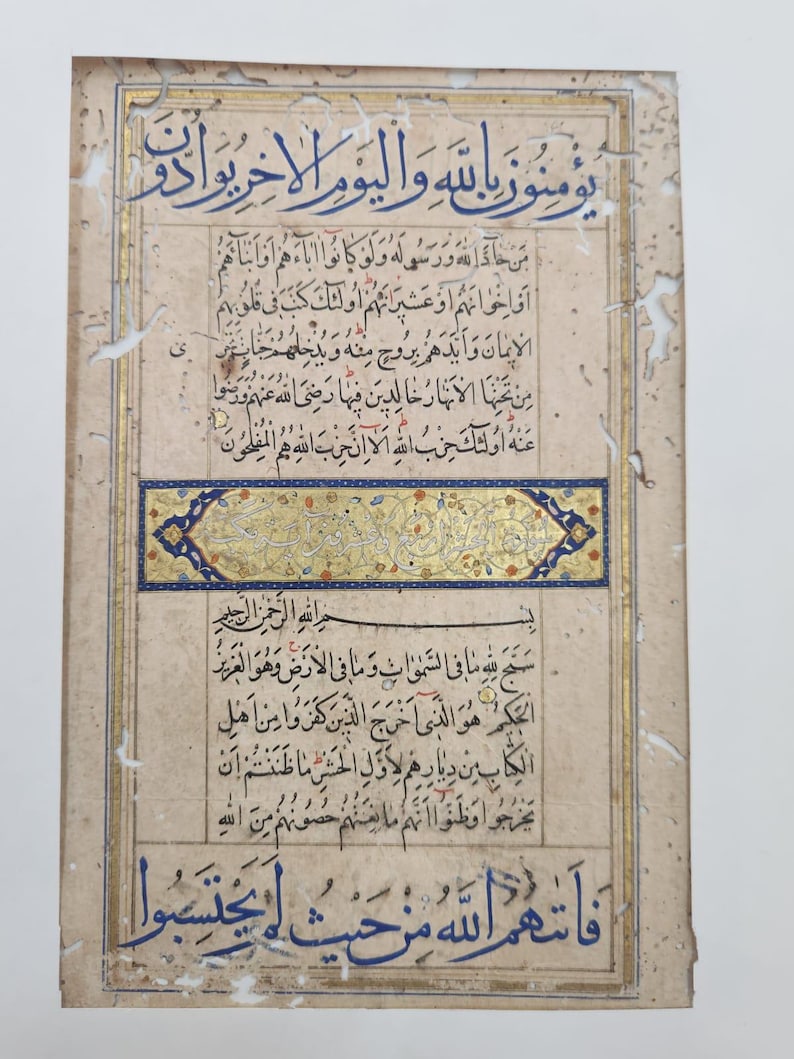 يُؤْمِنُونَ بِاللّٰهِ وَالْيَوْمِ الْاٰخِرِ يُوَادُّونَ
مَنْ حَادَّ اللّٰهَ وَرَسُولَهُ وَلَوْ كَانُوا اٰبَاءَهُمْ اَوْ اَبْنَاءَهُمْ
اَوْ اِخْوَانَهُمْ اَوْ عَشِيرَتَهُمْ اُولٰئِكَ كَتَبَ فِى قُلُوبِهِمُ
الْاِيمَانَ وَاَيَّدَهُمْ بِرُوحٍ مِنْهُ وَيُدْخِلُهُمْ جَنَّاتٍ تَجْرِى
مِنْ تَحْتِهَا الْاَنْهَارُ خَالِدِينَ فِيهَا رَضِىَ اللّٰهُ عَنْهُمْ وَرَضُوا
عَنْهُ اُولٰئِكَ حِزْبُ اللّٰهِ اَلَا اِنَّ حِزْبَ اللّٰهِ هُمُ الْمُفْلِحُونَ
سورة الحشر اربع وعشرون آية
بِسْمِ اللّٰهِ الرَّحْمٰنِ الرَّحِيمِ
سَبَّحَ لِلّٰهِ مَا فِى السَّمٰوَاتِ وَمَا فِى الْاَرْضِ وَهُوَ الْعَزِيزُ
الْحَكِيمُ هُوَ الَّذِى اَخْرَجَ الَّذِينَ كَفَرُوا مِنْ اَهْلِ
الْكِتَابِ مِنْ دِيَارِهِمْ لِاَوَّلِ الْحَشْرِ مَا ظَنَنْتُمْ اَنْ
يَخْرُجُوا وَظَنُّوا اَنَّهُمْ مَانِعَتُهُمْ حُصُونُهُمْ مِنَ اللّٰهِ
فَاَتٰيهُمُ اللّٰهُ مِنْ حَيْثُ لَمْ يَحْتَسِبُوا